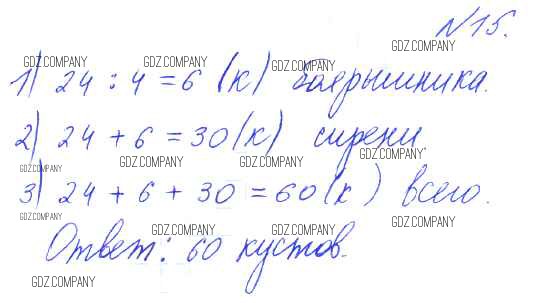 №15.
GDZ.COMPANY
GDZ.COMPANY GDZ.COMPANY GDZ.COMPANY
1) 24 : 4 = 6 (к) боярышника.
2) 24 + 6 = 30 (к) сирени
GDZ.COMPANY GDZ.COMPANY GDZ.COMPANY
GDZ.COMPANY
3) 24 + 6 + 30 = 60 (к) всего.
GDZ.COMPANY GDZ.COMPANY GDZ.COMPANY GDZ.COMPANY
Ответ: 60 кустов.
GDZ.COMPANY GDZ.COMPANY